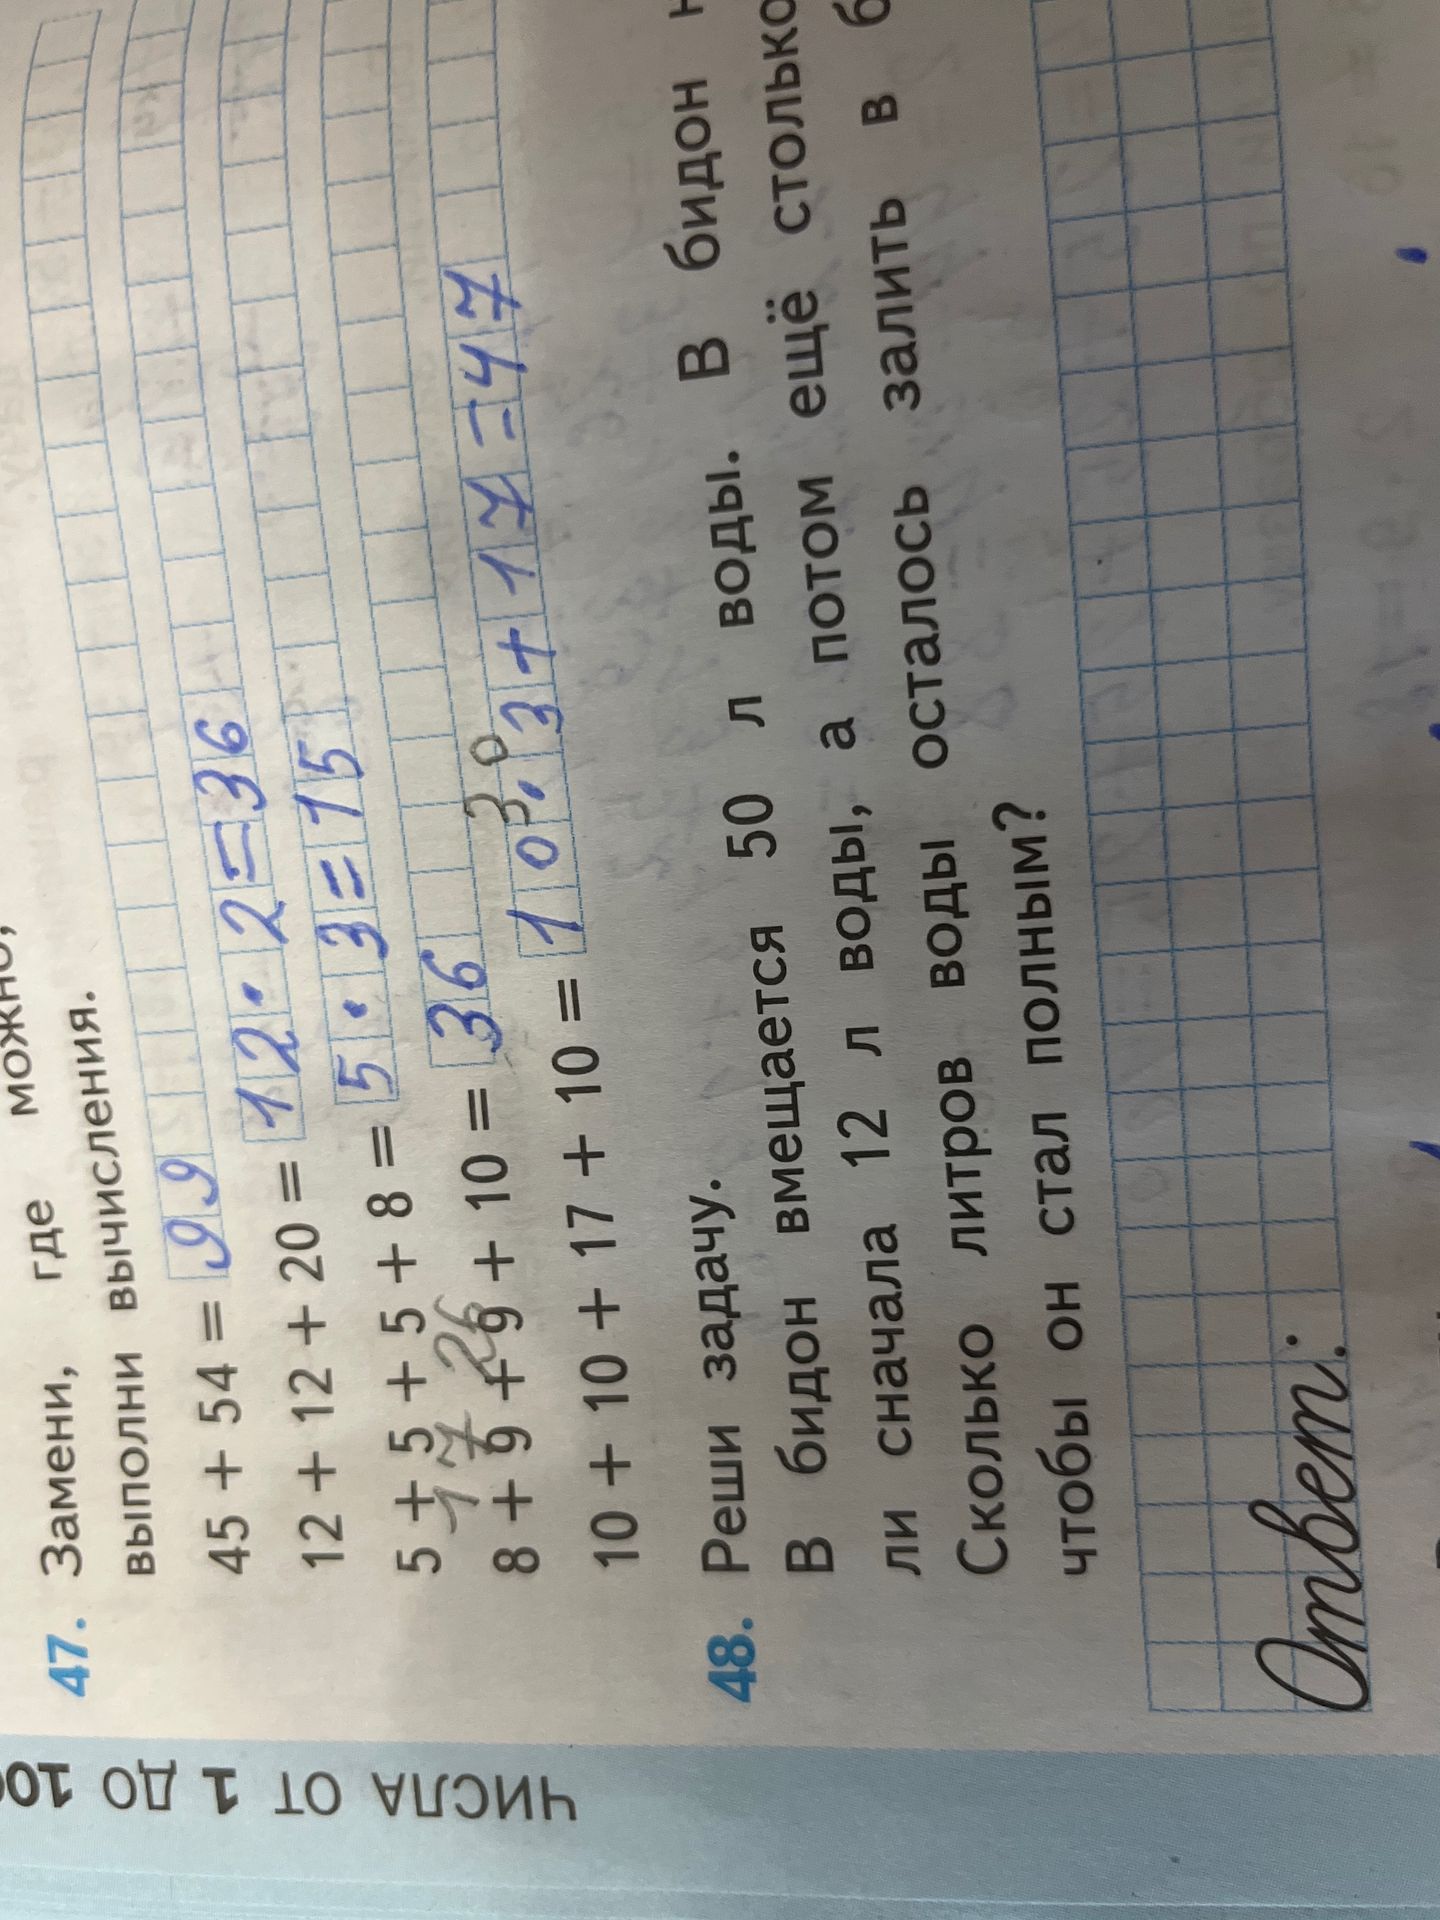 47. Замени, где можно,
выполни вычисления.
45 + 54 = 99
12 + 12 + 20 = 12 · 2 = 36
5 + 5 + 5 + 8 = 5 · 3 = 15
17 26
8 + 9 + 9 + 10 = 36
30
10 + 10 + 17 + 10 = 10 · 3 + 17 = 47
48. Реши задачу.
В бидон вмещается 50 л воды. В бидон н
ли сначала 12 л воды, а потом ещё столько
Сколько литров воды осталось залить в б
чтобы он стал полным?
Ответ:
ЧИСЛА ОТ 1 ДО 10